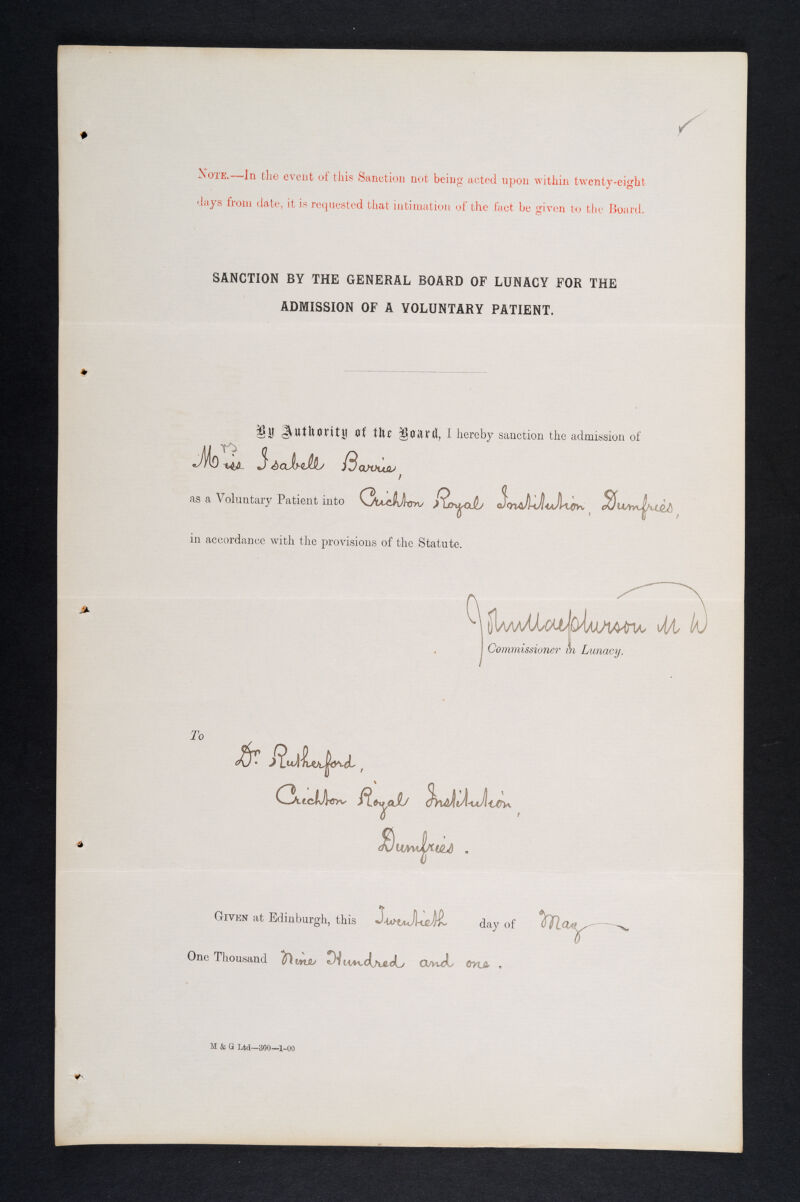 NOTE.—In the event of this Sanction not being acted upon within twenty-eight
days from date, it is requested that intimation of the fact be given to the Board.
SANCTION BY THE GENERAL BOARD OF LUNACY FOR THE
ADMISSION OF A VOLUNTARY PATIENT.
By Authority of the Board, I hereby sanction the admission of
rs
Miss Isabell Barrie,
as a Voluntary Patient into Crichton Royal Institution, Dumfries,
in accordance with the provisions of the Statute.
John Macpherson M D
Commissioner in Lunacy.
To
Dr. Rutherford,
Crichton Royal Institution,
Dumfries.
GIVEN at Edinburgh, this Twentieth day of May
One Thousand Nine Hundred and one.
M & G Ltd—360—1-00